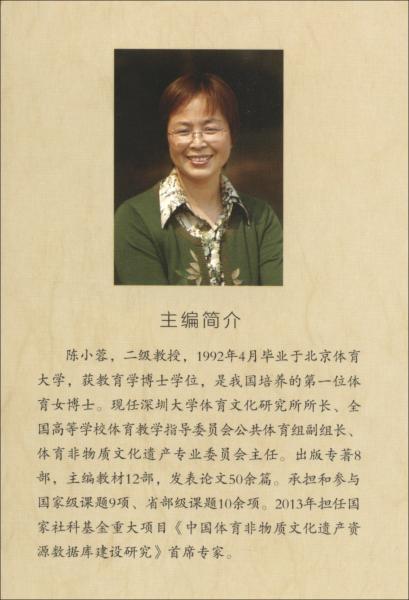 主编简介
陈小蓉，二级教授，1992年4月毕业于北京体育
大学，获教育学博士学位，是我国培养的第一位体
育女博士。现任深圳大学体育文化研究所所长、全
国高等学校体育教学指导委员会公共体育组副组长、
体育非物质文化遗产专业委员会主任。出版专著8
部，主编教材12部，发表论文50余篇。承担和参与
国家级课题9项、省部级课题10余项。2013年担任国
家社科基金重大项目《中国体育非物质文化遗产资
源数据库建设研究》首席专家。